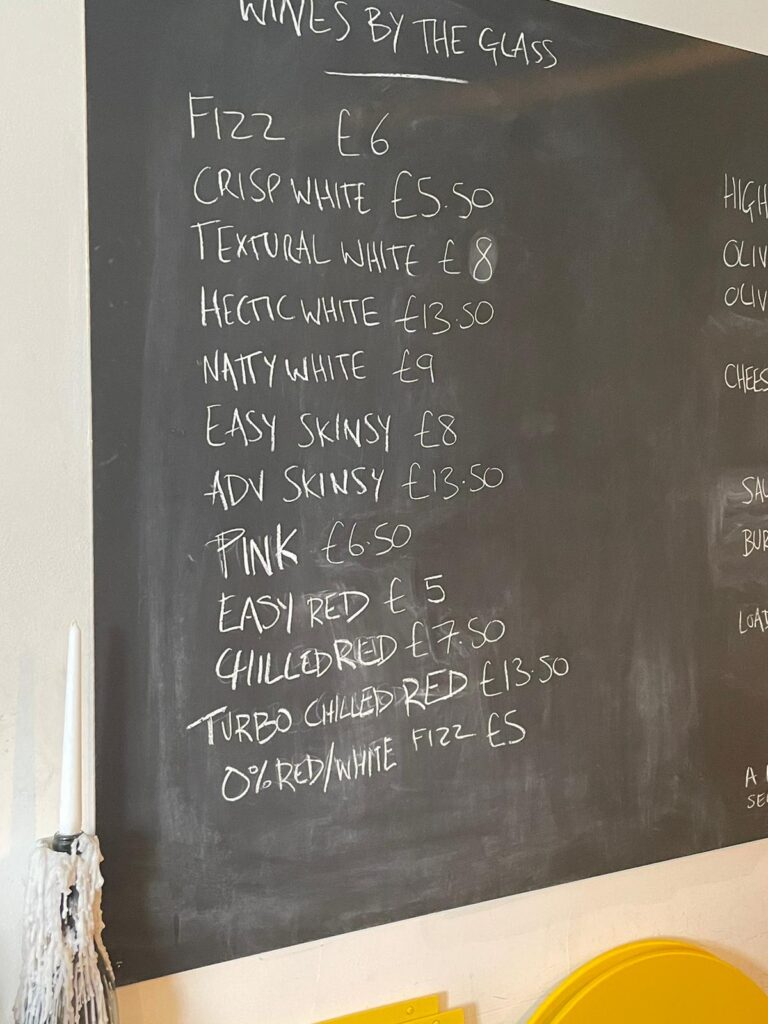 WINES BY THE GLASS
FIZZ £6
CRISP WHITE £5.50
TEXTURAL WHITE £8
HECTIC WHITE £13.50
NATTY WHITE £9
EASY SKINSY £8
ADV SKINSY £13.50
PINK £6.50
EASY RED £5
CHILLED RED £7.50
TURBO CHILLED RED £13.50
0% RED/WHITE FIZZ £5
HIGH
OLIV
OLIV
CHEES
SAU
BUR
LOAD
A
SE